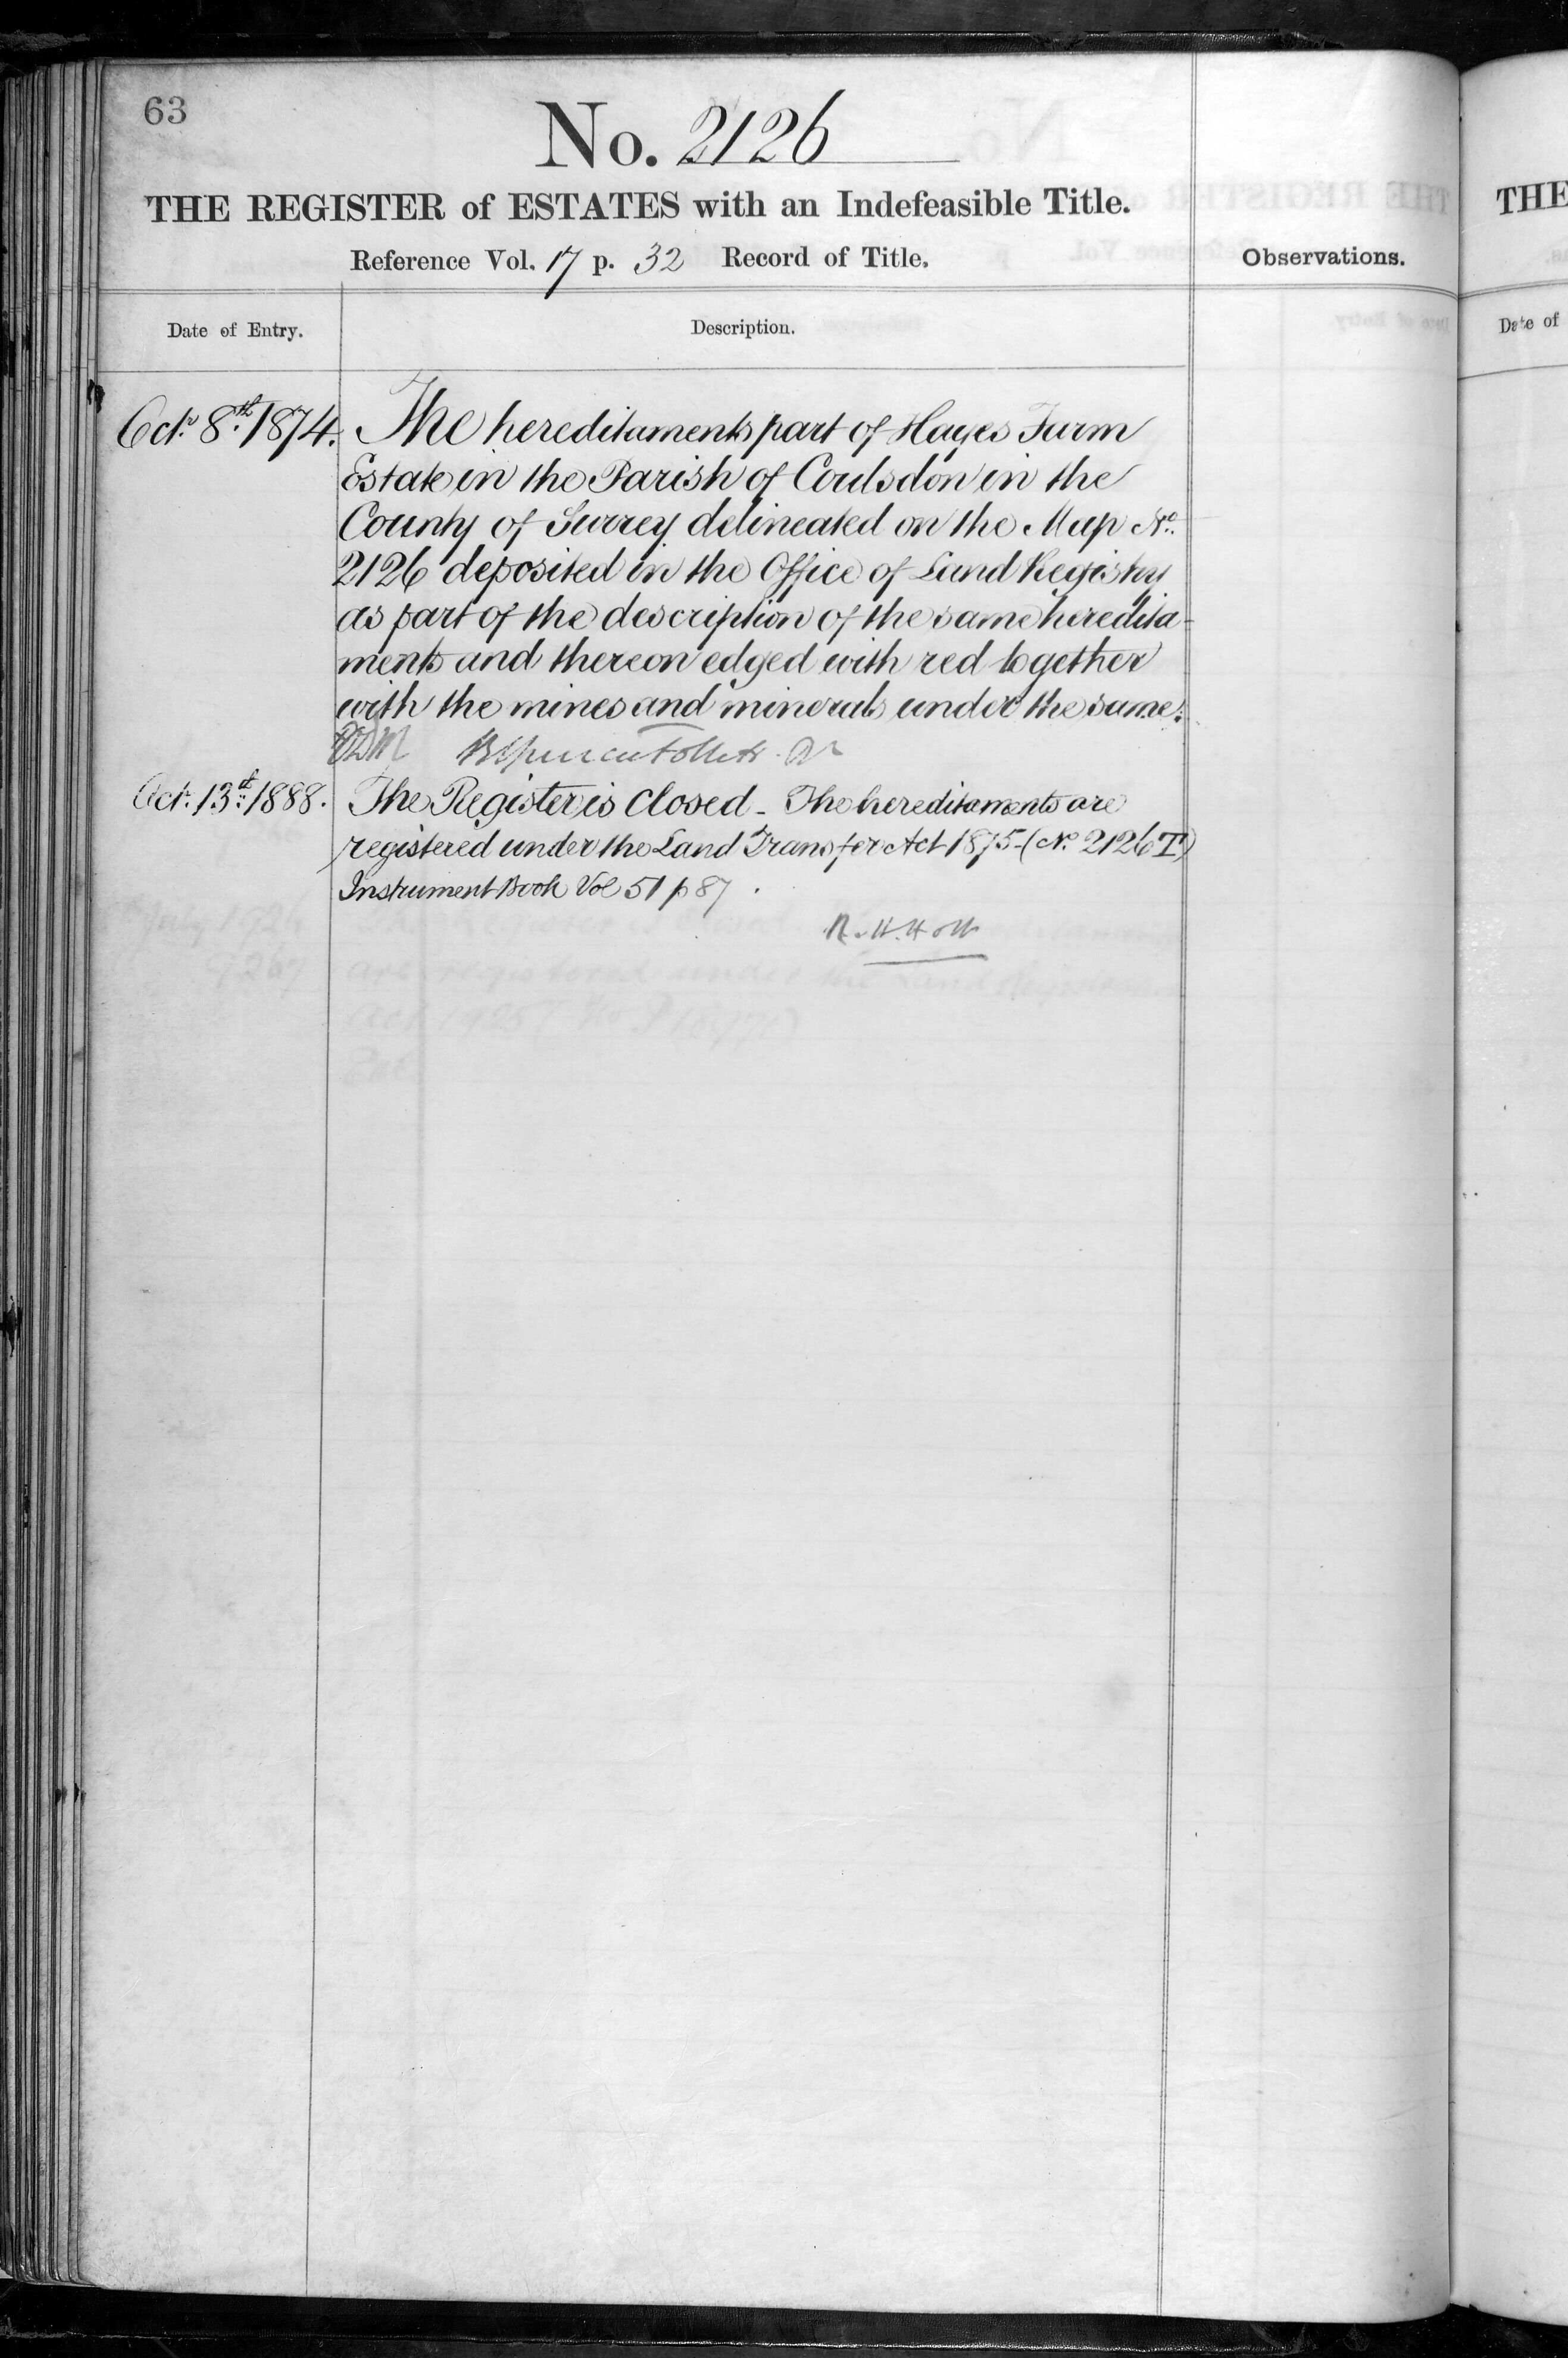 63
No. 2126
THE REGISTER of ESTATES with an Indefeasible Title.
Reference Vol. 17 p. 32 Record of Title.
Observations.
Date of Entry.
Description.
Octr. 8th. 1874.
The hereditaments part of Hayes Farm
Estate in the Parish of Coulsdon in the
County of Surrey delineated on the Map No.
2126 deposited in the Office of Land Registry
as part of the description of the same heredita-
ments and thereon edged with red together
with the mines and minerals under the same.
Oct. 13th. 1888.
The Register is closed - The hereditaments are
registered under the Land Transfer Act 1875 - (No. 2126 T)
Instrument Book Vol 51 p 87.
R. H. Holt
THE
Date of